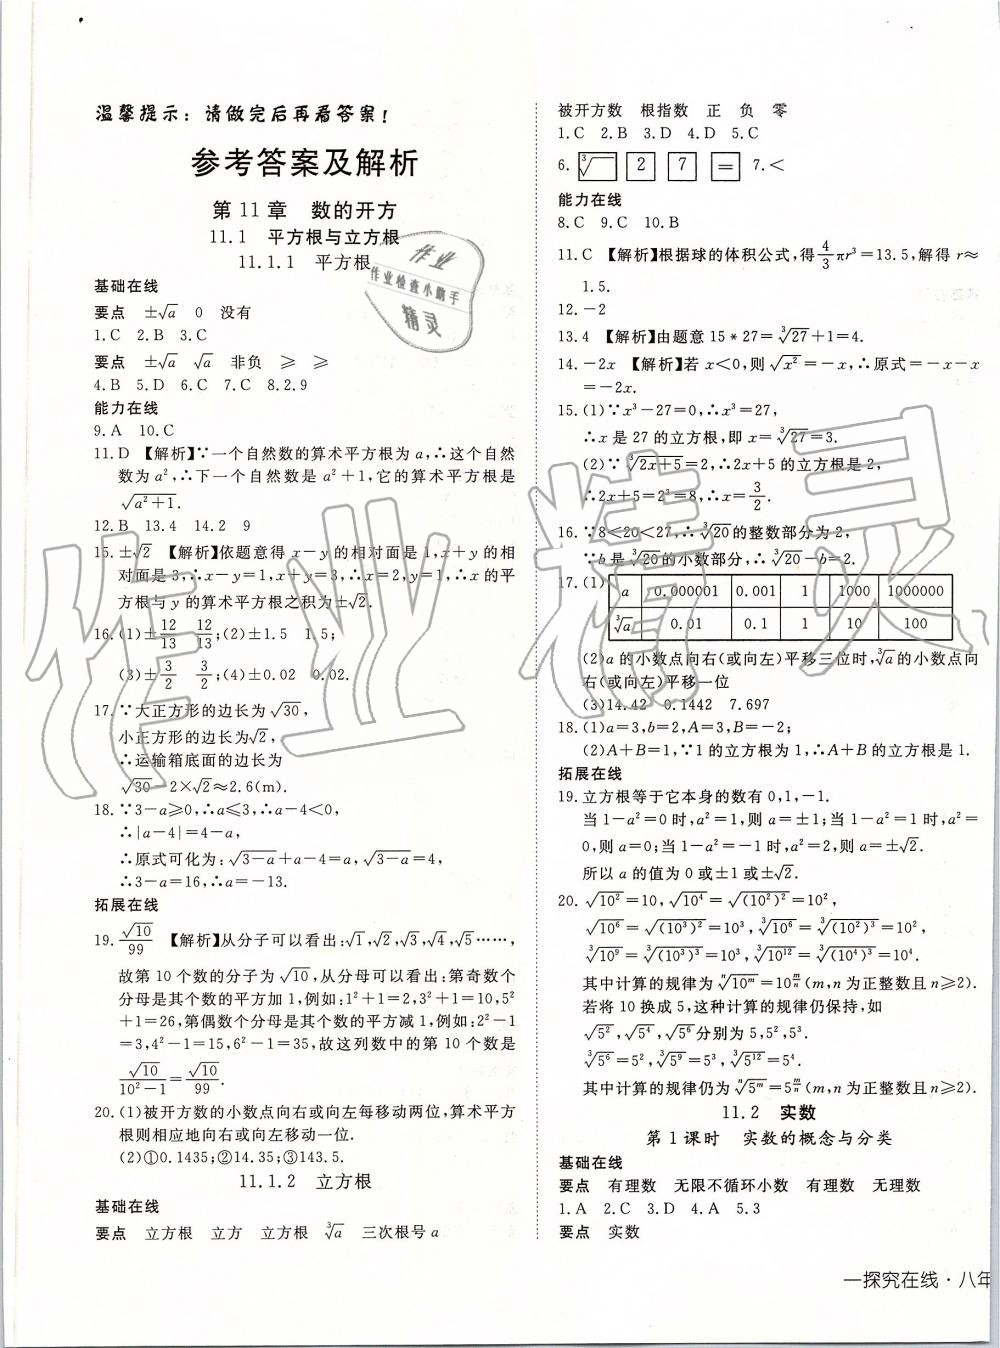 温馨提示：请做完后再看答案！
参考答案及解析
第11章 数的开方
11.1 平方根与立方根
11.1.1 平方根
基础在线
要点 ±√a 0 没有
1.C 2.B 3.C
要点 ±√a √a 非负 ≥ ≥
4.B 5.D 6.C 7.C 8.2.9
能力在线
9.A 10.C
11.D 【解析】∵一个自然数的算术平方根为a,∴这个自然
数为a²,∴下一个自然数是a²+1,它的算术平方根是
√(a²+1).
12.B 13.4 14.2 9
15.±√2 【解析】依题意得x-y的相对面是1,x+y的相
对面是3,∴x-y=1,x+y=3,∴x=2,y=1,∴x的平
方根与y的算术平方根之积为±√2.
16.(1)±12/13 12/13;(2)±1.5 1.5;
(3)±3/2 3/2;(4)±0.02 0.02.
17.∵大正方形的边长为√30,
小正方形的边长为√2,
∴运输箱底面的边长为
√30-2×√2≈2.6(m).
18.∵3-a≥0,∴a≤3,∴a-4<0,
∴|a-4|=4-a,
∴原式可化为:√(3-a)+a-4=a,√(3-a)=4,
∴3-a=16,∴a=-13.
拓展在线
19.√10/99 【解析】从分子可以看出:√1,√2,√3,√4,√5……,
故第10个数的分子为√10,从分母可以看出:第奇数个
分母是其个数的平方加1,例如:1²+1=2,3²+1=10,5²
+1=26,第偶数个分母是其个数的平方减1,例如:2²-1
=3,4²-1=15,6²-1=35,故这列数中的第10个数是
√10/(10²-1)=√10/99.
20.(1)被开方数的小数点向右或向左每移动两位,算术平方
根则相应地向右或向左移动一位.
(2)①0.1435;②14.35;③143.5.
11.1.2 立方根
基础在线
要点 立方根 立方 立方根 ∛a 三次根号a
被开方数 根指数 正 负 零
1.C 2.B 3.D 4.D 5.C
6. ∛ 2 7 = 7.<
能力在线
8.C 9.C 10.B
11.C 【解析】根据球的体积公式,得4/3πr³=13.5,解得r≈
1.5.
12.-2
13.4 【解析】由题意15*27=∛27+1=4.
14.-2x 【解析】若x<0,则√x²=-x,∴原式=-x-x
=-2x.
15.(1)∵x³-27=0,∴x³=27,
∴x是27的立方根,即x=∛27=3.
(2)∵∛(2x+5)=2,∴2x+5的立方根是2,
∴2x+5=2³=8,∴x=3/2.
16.∵8<20<27,∴∛20的整数部分为2,
∵b是∛20的小数部分,∴∛20-b=2.
17.(1) a 0.000001 0.001 1 1000 1000000
∛a 0.01 0.1 1 10 100
(2)a的小数点向右(或向左)平移三位时,∛a的小数点向
右(或向左)平移一位
(3)14.42 0.1442 7.697
18.(1)a=3,b=2,A=3,B=-2;
(2)A+B=1,∵1的立方根为1,∴A+B的立方根是1.
拓展在线
19.立方根等于它本身的数有0,1,-1.
当1-a²=0时,a²=1,则a=±1;当1-a²=1时,a²=
0,则a=0;当1-a²=-1时,a²=2,则a=±√2.
所以a的值为0或±1或±√2.
20.√10²=10,√10⁴=√(10²)²=10²,
√10⁶=√(10³)²=10³,∛10⁶=∛(10²)³=10²,
∛10⁹=∛(10³)³=10³,∛10¹²=∛(10⁴)³=10⁴.
其中计算的规律为ⁿ√10ᵐ=10^(m/n)(m,n为正整数且n≥2).
若将10换成5,这种计算的规律仍保持,如
√5²,√5⁴,√5⁶分别为5,5²,5³.
∛5⁶=5²,∛5⁹=5³,∛5¹²=5⁴.
其中计算的规律仍为ⁿ√5ᵐ=5^(m/n)(m,n为正整数且n≥2).
11.2 实数
第1课时 实数的概念与分类
基础在线
要点 有理数 无限不循环小数 有理数 无理数
1.A 2.C 3.D 4.A 5.3
要点 实数
一探究在线·八年
作业
作业检查小助手
精灵
作业精灵